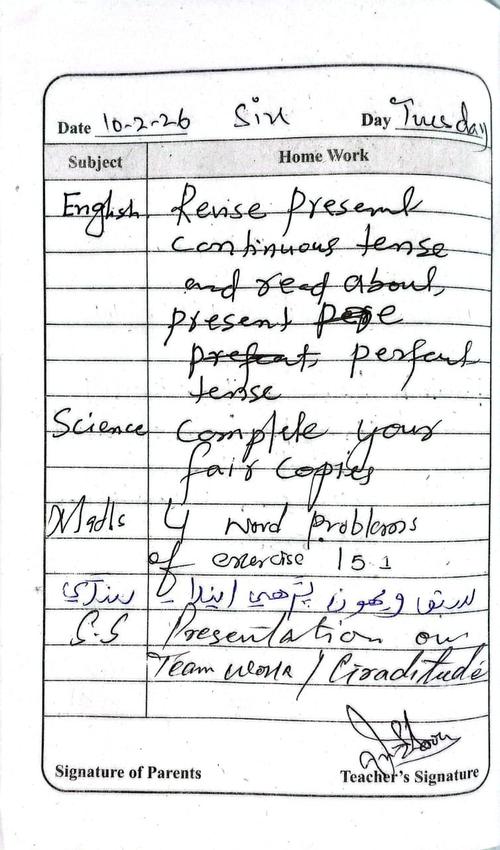 Date 10-2-26 Six Day Tuesday
Subject Home Work
English Revise Present
continuous tense
and read about
present
perfect
tense
Science Complete your
fair Copies
Maths 4 word problems
of exercise 15.1
سنڌي پڙهي ايندا
S.S Presentation on
Team work / Graditude
Signature of Parents Teacher's Signature